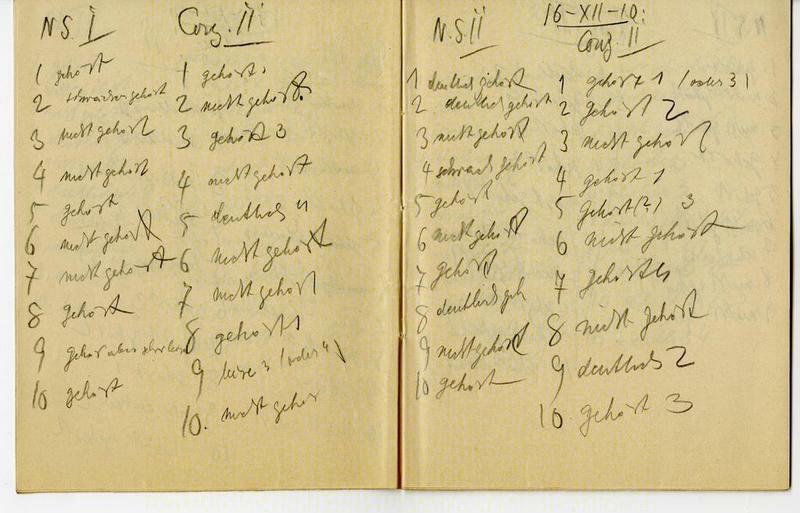 N.S. I
1 gehört
2 schwächer gehört
3 nicht gehört
4 nicht gehört
5 gehört
6 nicht gehört
7 nicht gehört
8 gehört
9 gehört aber
10 gehört
Conz. II
1 gehört 1
2 nicht gehört
3 gehört 3
4 nicht gehört
5 deutlich 4
6 nicht gehört
7 nicht gehört
8 gehört 1
9 leise 3 (oder 4)
10. nicht gehör
N.S. II
1 deutlich gehört
2 deutlich gehört
3 nicht gehört
4 schwach gehört
5 gehört
6 nicht gehört
7 gehört
8 deutlich geh
9 nicht gehört
10 gehört
16-XII-10:
Conz. II
1 gehört 1 (oder 3)
2 gehört 2
3 nicht gehört
4 gehört 1
5 gehört (?) 3
6 nicht gehört
7 gehört 4
8 nicht gehört
9 deutlich 2
10. gehört 3